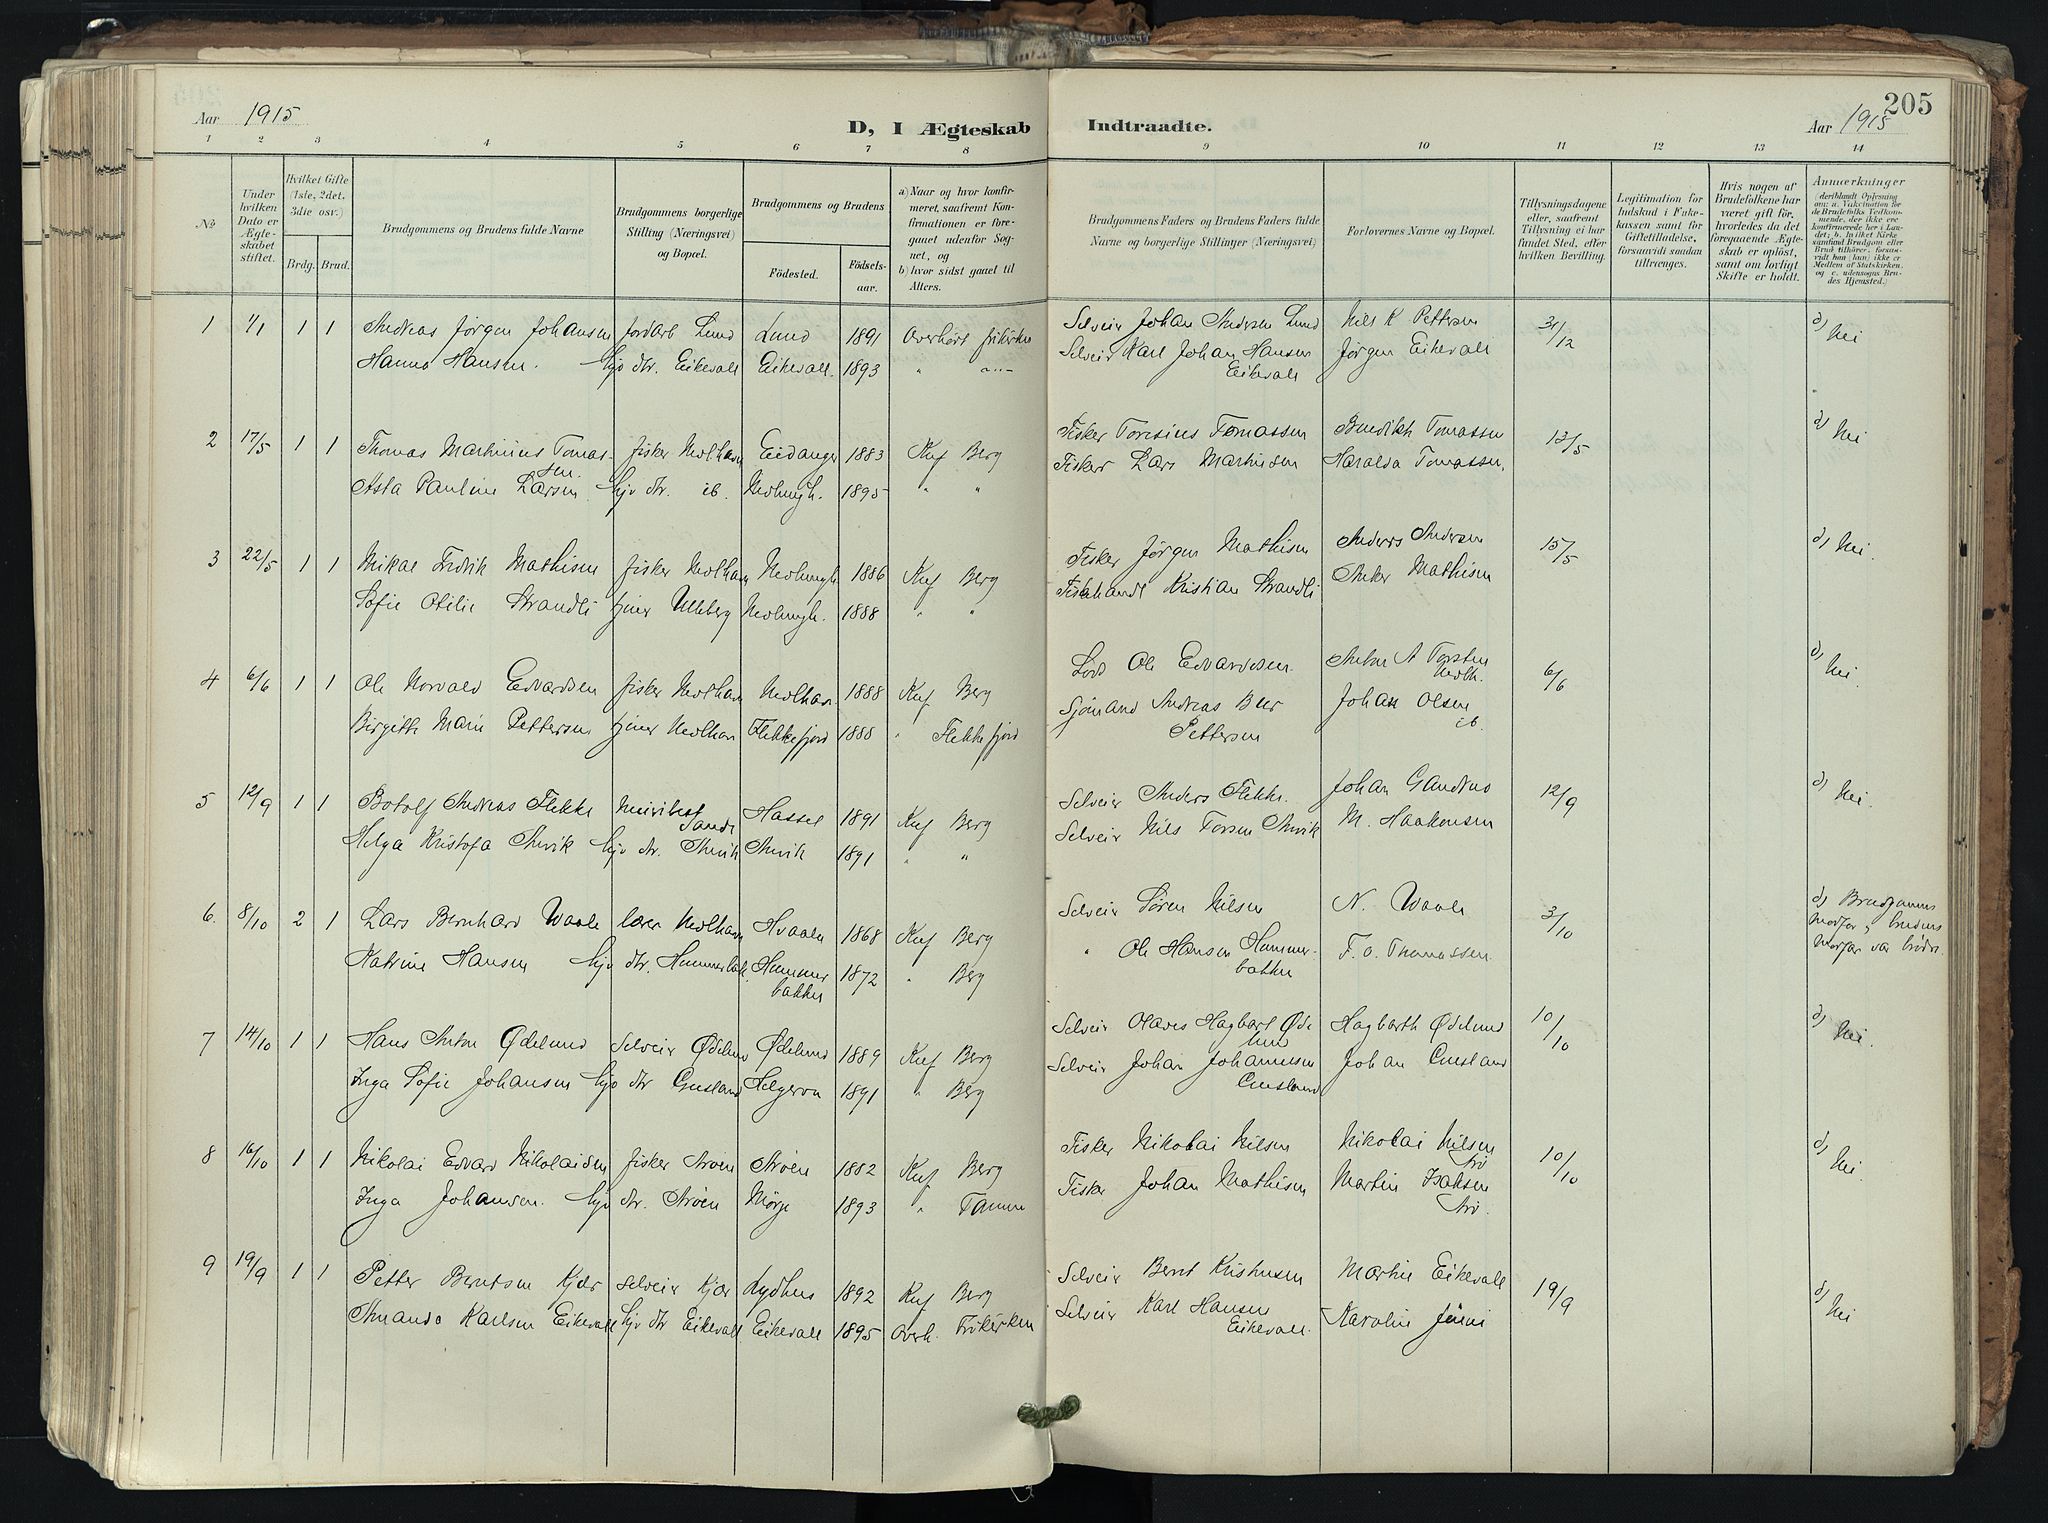 205
Aar 1915
D, I Ægteskab Indtraadte.
Aar 1915
1 2 3 4 5 6 7 8 9 10 11 12 13 14
№
Under hvilken Dato er Ægteskabet stiftet.
Hvilket Gifte (1ste, 2det, 3die osv.)
Brdg. Brud.
Brudgommens og Brudens fulde Navne
Brudgommens borgerlige Stilling (Næringsvei) og Bopæl.
Brudgommens og Brudens
Födested.
Födselsaar.
a) Naar og hvor konfirmeret, saafremt Konfirmationen er foregaaet udenfor Sognet, og
b) hvor sidst gaaet til Alters.
Brudgommens Faders og Brudens Faders fulde Navne og borgerlige Stillinger (Næringsvei)
Forlovernes Navne og Bopæl.
Tillysningsdagene eller, saafremt Tillysning ei har fundet Sted, efter hvilken Bevilling.
Legitimation for Indskud i Enkekassen samt for Giftetilladelse, forsaavidt saadan tiltrænges.
Hvis nogen af Brudefolkene har været gift för, hvorledes da det foregaaende Ægteskab er oplöst, samt om lovligt Skifte er holdt.
Anmærkninger
(deriblandt Oplysning om: a. Vakcination for de Brudefolks Vedkommende, der ikke ere konfirmerede her i Landet; b. hvilket Kirkesamfund Brudgom eller Brud tilhörer, forsaavidt han (hun) ikke er Medlem af Statskirken, og c. udensogns Brudes Hjemsted.)
1 1/1 1 1 Andreas Jörgen Johansen Jordarb Lund Lund 1891 Overhört frikirken Selveir Johan Andersen Lund Nils K Pettersen 31/12 d) Nei
Hanna Hansen. Hjv dtr. Eikevall Eikevall. 1893 " " Selveir Karl Johan Hansen Eikevall Jörgen Eikevall
2 17/5 1 1 Thomas Martinius Tomassen. fisker Nevlhavn Eidanger 1883 Knf Berg Fisker Toresius Tomassen Benedikth Tomassen 13/5 d) Nei
Asta Pauline Larsen Hjv dtr. ib. Nevlungh. 1895 " " Fisker Lars Martinsen Haralda Tomassen.
3 22/5 1 1 Mikal Fredrik Mathisen fisker Nevlhavn Nevlungh 1886 Knf Berg Fisker Jörgen Mathisen Anders Andersen 15/5 d) Nei.
Sofie Otilie Strandli tjener Ulleberg Nevlungh. 1888 " " Fiskehandl Kristian Strandli Anker Mathisen
4 6/6 1 1 Ole Norvald Edvardsen fisker Nevlhavn Nevlhavn. 1888 Knf Berg Lods Ole Edvardsen. Anton A Torsten Nevlh. 6/6 d) Nei.
Birgitte Marie Pettersen tjener Nevlhavn Flekkefjord 1888 " Flekkefjord Sjömand Andreas Beer Pettersen Johan Olsen ib.
5 12/9 1 1 Botolf Andreas Flekke Sande Hassel 1891 Knf Berg Selveir Anders Flekke. Johan 12/9 d) Nei.
Helga Kristofa Anvik Hjv dtr. Anvik Anvik 1891 " " Selveir Nils Torsen Anvik M. Haakonsen
6. 8/10 2 1 Lars Bernhard Waale lærer Nevlhavn Hvaale 1868 Knf Berg Selveir Sören Nilsen N. Waale 3/10 d) Brudgommens Morfar og brudens Morfar var brödre.
Katrine Hansen Hjv dtr. Hummerbak. Hummerbakken 1872 " Berg " Ole Hansen Hummerbakken F. O. Thomassen.
7 14/10 1 1 Hans Anton Ödelund Selveir Ödelund Ödelund 1889 Knf Berg Selveir Olaves Hagbart Ödelund Hagbarth Ödelund 10/10 d) Nei.
Inga Sofie Johansen Hjv dtr Gusland Helgeroa 1891 " Berg Selveir Johan Johannesen Gusland Johan Gusland
8 16/10 1 1 Nikolai Edvard Nikolaisen fisker Aröen Aröen 1882 Knf Berg Fisker Nikolai Nilsen Nikolai Nilsen Arö 10/10 d) Nei.
Inga Johansen. Hjv dtr. Aröen Mörje 1893 " Tanum Fisker Johan Mathisen Martin Isaksen Arö.
9 19/9 1 1 Petter Berntsen Kjær selveir Kjær Lydhus 1892 Knf Berg Selveir Bernt Kristensen Martin Eikevall 19/9 d) Nei
Amanda Karlsen Eikevall Hjv dtr Eikevall Eikevall 1895 Overh. Frikirken Selveir Karl Hansen Eikevall. Karoline